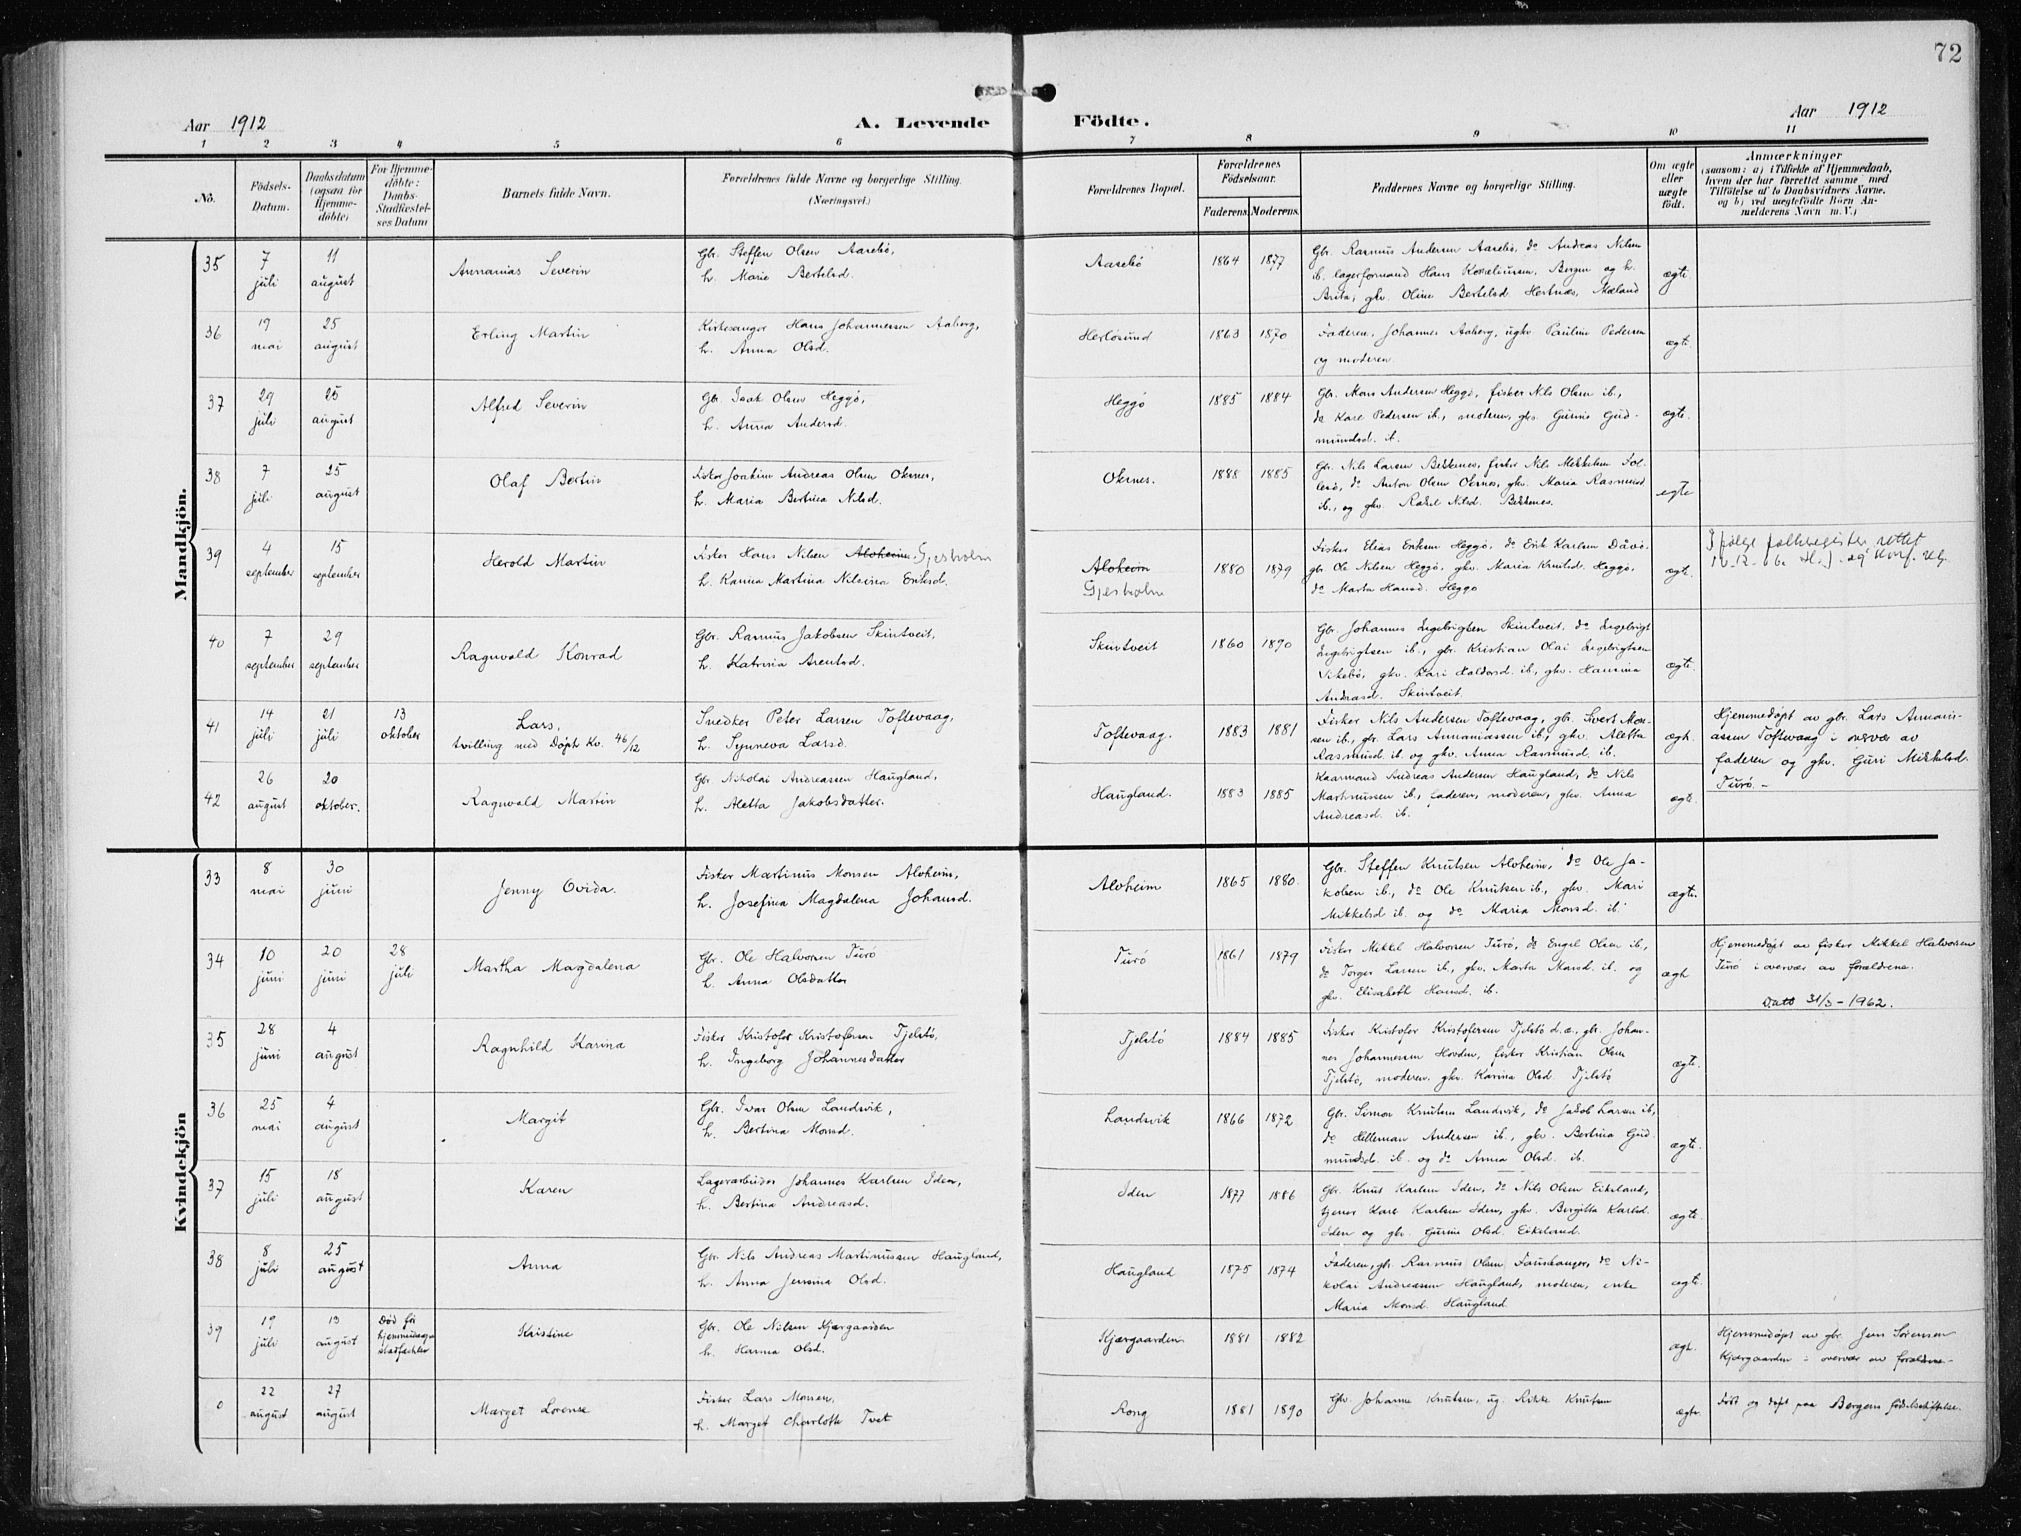 72
Aar 1912
A. Levende Födte.
Aar 1912
1 2 3 4 5 6 7 8 9 10 11
No.
Födsels-
Datum.
Daabsdatum
(ogsaa for
Hjemme-
döbte)
For Hjemme-
döbte:
Daabs-
Stadfæstel-
ses Datum
Barnets fulde Navn.
Forældrenes fulde Navne og borgerlige Stilling.
(Næringsvei.)
Forældrenes Bopæl.
Forældrenes
Födselsaar.
Faderens. Moderens.
Faddernes Navne og borgerlige Stilling.
Om ægte
eller
uægte
födt.
Anmærkninger
(saasom: a) i Tilfælde af Hjemmedaab,
hvem der har forrettet samme med
Tilföielse af to Daabsvidners Navne,
og b) ved uægtefödte Börn An-
melderens Navn m. V.)
Mandkjön.
35
7
juli
11
august
Annanias Severin
Gbr. Steffen Olsen Aasebö,
h. Marie Bertelsd.
Aasebö
1864 1877
Gbr. Rasmus Andersen Aasebö, do Andreas Nilsen
ib. lagerformand Hans Korneliussen, Bergen og h.
Brita, gkv. Oline Bertelsd. Hertnæs, Mæland
ægte.
36
19
mai
25
august
Erling Martin
Kirkesanger Hans Johannessen Aaberg,
h. Anna Olsd.
Herlösund
1863 1870
Faderen, Johannes Aaberg, ugkv. Pauline Pedersen
og moderen.
ægte.
37
29
juli
25
august
Alfred Severin
Gbr. Isak Olsen Heggö,
h. Anna Andersd.
Heggö
1885 1884
Gbr. Mons Andersen Heggö, fisker Nils Olsen ib.,
do Karl Pedersen ib., moderen, gkv. Gurine Gud-
mundsd. ib.
ægte.
38
7
juli
25
august
Olaf Bertin
Fisker Joakim Andreas Olsen Oernes,
h. Maria Bertina Nilsd.
Oernes.
1888 1885
Gbr. Nils Larsen Bekkenes, fisker Nils Mikkelsen Tol-
lerö, do Anton Olsen Oernes, gkv. Maria Rasmusd
ib., og gkv. Rakel Nilsd. Bekkenes.
ægte
39
4
september
15
september
Herold Martin
Fisker Hans Nilsen Alvheim. Gjesholm
h. Kanna Martina Nilsina Eriksd.
Alvheim
Gjesholm
1880 1879
Fisker Elias Eriksen Heggö, do Erik Karlsen Dåvö,
gbr. Ole Nilsen Heggö, gkv. Maria Knutsd. Heggö,
do Marta Hansd. Heggö
ægte.
I følge folkeregister rettet
40
7
september
29
september
Ragnvald Konrad
Gbr. Rasmus Jakobsen Skintveit,
h. Katrina Arentsd.
Skintveit
1860 1890
Gbr. Johannes Ingebrigtsen Skintveit, do Ingebrigt
Ingebrigtsen ib., gbr. Kristian Olai Ingebrigtsen
Vikebö, gkv. Kari Haldorsd. ib., gkv. Hannina
Andreasd. Skintveit
ægte.
41
14
juli
21
juli
13
oktober
Lars,
tvilling med Döpte Kv. 46/12
Snedker Peter Larsen Toftevaag,
h. Synneva Larsd.
Toftevaag.
1883 1881
Fisker Nils Andersen Toftevaag, gbr. Sivert Mon-
sen ib., gbr. Lars Annaniassen ib., gkv. Aletta
Rasmusd. ib. og gkv. Anna Rasmusd. ib.
ægte.
Hjemmedöpt av gbr. Lars Annani-
assen Toftevaag i overvær av
faderen og gkv. Guri Mikkelsd.
Turö. -
42
26
august
20
oktober.
Ragnvald Martin
Gbr Nikolai Andreassen Haugland,
h. Aletta Jakobsdatter.
Haugland.
1883 1885
Kaarmand Andreas Andersen Haugland, do Nils
Martinussen ib., faderen, moderen, gkv. Anna
Andreasd. ib.
ægte.
Kvindekjön
33
8
mai
30
juni
Jenny Ovida.
Fisker Martinus Monsen Alvheim,
h. Josefina Magdalena Johansd.
Alvheim
1865 1880.
Gbr. Steffen Knutsen Alvheim, do Ole Ja-
kobsen ib., do Ole Knutsen ib., gkv. Mari
Mikkelsd ib. og do Maria Monsd. ib.
ægte.
34
10
juni
20
juni
28
juli
Martha Magdalena
Gbr. Ole Halvorsen Turö
h. Anna Olsdatter
Turö
1861 1879
Fisker Mikkel Halvorsen Turö, do Engel Olsen ib.,
do Torger Larsen ib., gkv. Marta Monsd. ib. og
gkv. Elisabeth Hansd. ib.
ægte
Hjemmedöpt av fisker Mikkel Halvorsen
Turö i overvær av forældrene.
Datt 31/3-1962.
35
28
juni
4
august
Ragnhild Karina
Fisker Kristofer Kristofersen Tjelstö,
h. Ingeborg Johannesdatter
Tjelstö
1884 1885
Fisker Kristofer Kristofersen Tjelstö d.æ., gbr. Johan-
nes Johannessen Hovden, fisker Kristian Olsen
Tjelstö, moderen. gkv. Karina Olsd. Tjelstö
ægte.
36
25
mai
4
august
Margit
Gbr. Ivar Olsen Landsvik,
h. Bertina Monsd.
Landsvik
1866 1872
Gbr. Simon Knutsen Landsvik, do Jakob Larsen ib,
do Hilleman Andersen ib., gkv. Bertina Gud-
mundsd. ib. og do Anna Olsd. ib.
ægte.
37
15
juli
18
august
Karen
Lagerarbeider Johannes Karlsen Iden,
h. Bertina Andreasd.
Iden
1877 1886
Gbr. Knut Karlsen Iden, do Nils Olsen Eikeland,
tjener Karl Karlsen Iden, gkv. Bergitta Karlsd.
Iden og gkv. Gurine Olsd. Eikeland.
ægte.
38
8
juli
25
august
Anna
Gbr Nils Andreas Martinussen Haugland,
h. Anna Jensina Olsd.
Haugland
1875 1874
Faderen, gbr. Rasmus Olsen Fauskanger, do Ni-
kolai Andreassen Haugland, moderen, enke
Maria Monsd. Haugland.
ægte.
39
19
juli
13
august
Död för
hjemmedaaps
stadfæstelse
Kristine
Gbr. Ole Nilsen Kjærgaarden
h. Hanna Olsd.
Kjærgaarden
1881 1882
ægte.
Hjemmedöpt av gbr. Jens Sörensen
Kjærgaarden i overvær av forældrene-
0
22
august
27
august
Marget Lovense
Fisker Lars Monsen,
h. Marget Charlotte Tvet
Rong
1881 1890
Gkv. Johanne Knutsen, ug. Rikke Knutsen
ægte.
Födt og döpt paa Bergens födselsstiftelse.